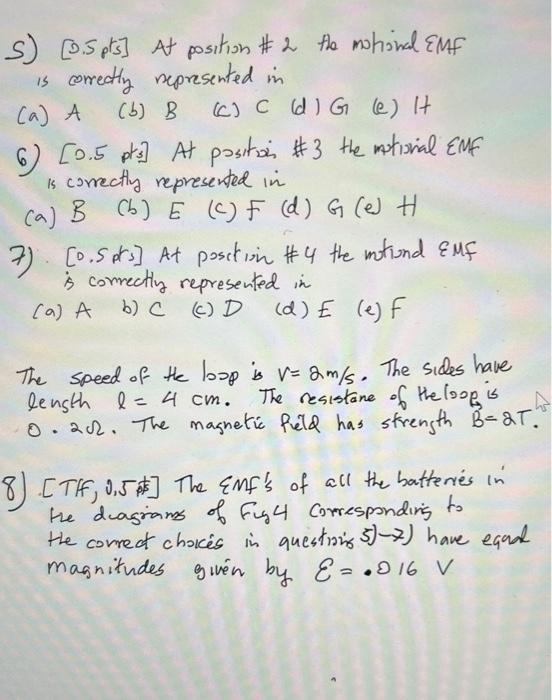 5) [0.5 pts] At position # 2 the motional EMF
is correctly represented in
(a) A (b) B (c) C (d) G (e) H
6) [0.5 pts] At position #3 the motional EMF
is correctly represented in
(a) B (b) E (c) F (d) G (e) H
7) [0.5 pts] At position #4 the motional EMF
is correctly represented in
(a) A b) C (c) D (d) E (e) F
The speed of the loop is V = 2m/s. The sides have
length l = 4 cm. The resistane of the loop is
0.2Ω. The magnetic field has strength B = 2T.
8) [T/F, 0.5 pt] The EMF's of all the batteries in
the diagrams of Fig 4 corresponding to
the correct choices in questions 5)-7) have equal
magnitudes given by Ɛ = .016 V